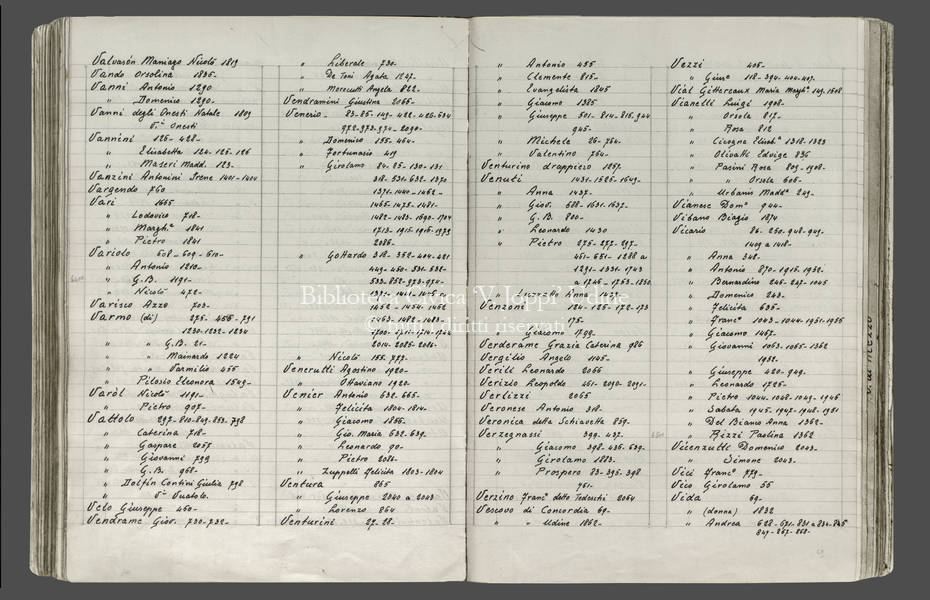 Valvasón Maniago Nicolò 1819
Vando Orsolina 1835-
Vanni Antonio 1290
" Domenico 1290-
Vanni degli Onesti Natale 1809
Vannini 126-428-
" Elisabetta 124-125-126
" Maseri Madd. 123-
Vanzini Antonini Irene 1401-1404
Vargendo 760
Vari 1665
" Lodovico 718-
" Margh.ª 1841
" Pietro 1841
Variolo 608-609-610-
" Antonio 1210-
" G.B. 1191-
" Nicolò 472-
Varisco Azzo 703-
Varmo (di) 275-456-791
1230-1232-1234
" " G.B. 21-
" " Mainardo 1224
" " Varmilio 455
" Pilosio Eleonora 1549-
Varòl Nicolò 1191-
" Pietro 907-
Vattolo 297-810-849-853-798
" Caterina 718-
" Gaspare 2057
" Giovanni 799
" G.B. 968-
" Dolfin Contini Giulia 798
Velo Giuseppe 460-
Vendrame Giov. 730-732-
" Liberale 730-
" De Toni Agata 1247-
" Morocutti Angela 822-
Vendramini Giustina 2065-
Venerio 83-85-149-422-426-534
972-973-974-2090-
" Domenico 155-464-
" Fortunato 419
" Girolamo 84-85-130-131
318-531-632-1370
1371-1440-1462-
1465-1475-1481-
1482-1483-1690-1704
1713-1915-1916-1979
2086-
" Gottardo 318-352-414-421
449-450-531-532-
533-852-973-974-
1452-1454-1462
1463-1482-1483-
2014-2085-2086-
" Nicolò 155-777-
Venerutti Agostino 1920-
" Ottaviano 1920-
Venier Antonio 632-665-
" Felicita 1804-1814-
" Giacomo 1856-
" Gio. Maria 632-639-
" Leonardo 90-
" Pietro 2086-
" Zuppelli Felicita 1803-1804
Ventura 865
" Giuseppe 2040 a 2043
" Lorenzo 864
Venturini 27-28-
" Antonio 455
" Clemente 815-
" Evangelista 1845
" Giacomo 1385
" Giuseppe 501-814-815-944
945-
" Michele 26-764-
" Valentino 764-
Venturino drappiere 1057-
Venuti 1431-1525-1649-
" Anna 1437-
" Giov. 688-1631-1637-
" G.B. 800-
" Leonardo 1430
" Pietro 275-277-297-
451-651-1288 a
1291-1331-1743
a 1746-1753-1230
Venzone 124-125-172-173
175-
" Giacomo 1799-
Verderame Grazia Caterina 986
Vergilio Angelo 1145-
Verili Leonardo 2066
Verizio Leopoldo 461-2090-2091-
Verlizzi 2065
Veronese Antonio 318-
Veronica della Schiavetta 859-
Verzegnassi 399-437-
" Giacomo 398-436-639-
" Girolamo 1883-
" Prospero 83-395-398
761-
Verzino Franc.º detto Tedeschi 2064
Vescovo di Concordia 69-
" " Udine 1862-
Vezzi 405-
" Gius.e 118-394-404-407-
Vial Gittereaux Maria Margh.ª 149-1508
Vianelli Luigi 1908-
" Orsola 817-
" Rosa 812
" Cicogna Elisab.ª 1318-1323
" Olivatti Edvige 836
" Pasini Rosa 809-1908-
" " Orsola 606-
" Urbanis Madd.ª 249-
Vianese Dom.º 944-
Vibano Biagio 1874
Vicario 86-250-948-949-
1409 a 1418-
" Anna 348-
" Antonio 870-1915-1932-
" Bernardino 245-247-1045
" Domenico 243-
" Felicita 635-
" Franc.º 1043-1044-1951-1956
" Giacomo 1467-
" Giovanni 1063-1065-1362
1952-
" Giuseppe 420-949-
" Leonardo 1725-
" Pietro 1044-1048-1049-1946
" Sabata 1945-1947-1948-1951
" Del Bianco Anna 1362-
" Rizzi Paolina 1362
Vicenzutti Domenico 2043-
" Simone 2043-
Vici Franc.º 779-
Vico Girolamo 55
Vida 69-
" (donna) 1832
" Andrea 628-671-831 a 834-845
847-867-868-
Biblioteca Civica 'V. Joppi' Udine
© tutti i diritti riservati